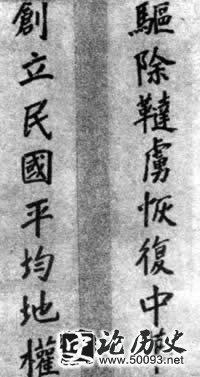 驅除韃虜恢復中華
創立民國平均地權
论历史
www.50093.net